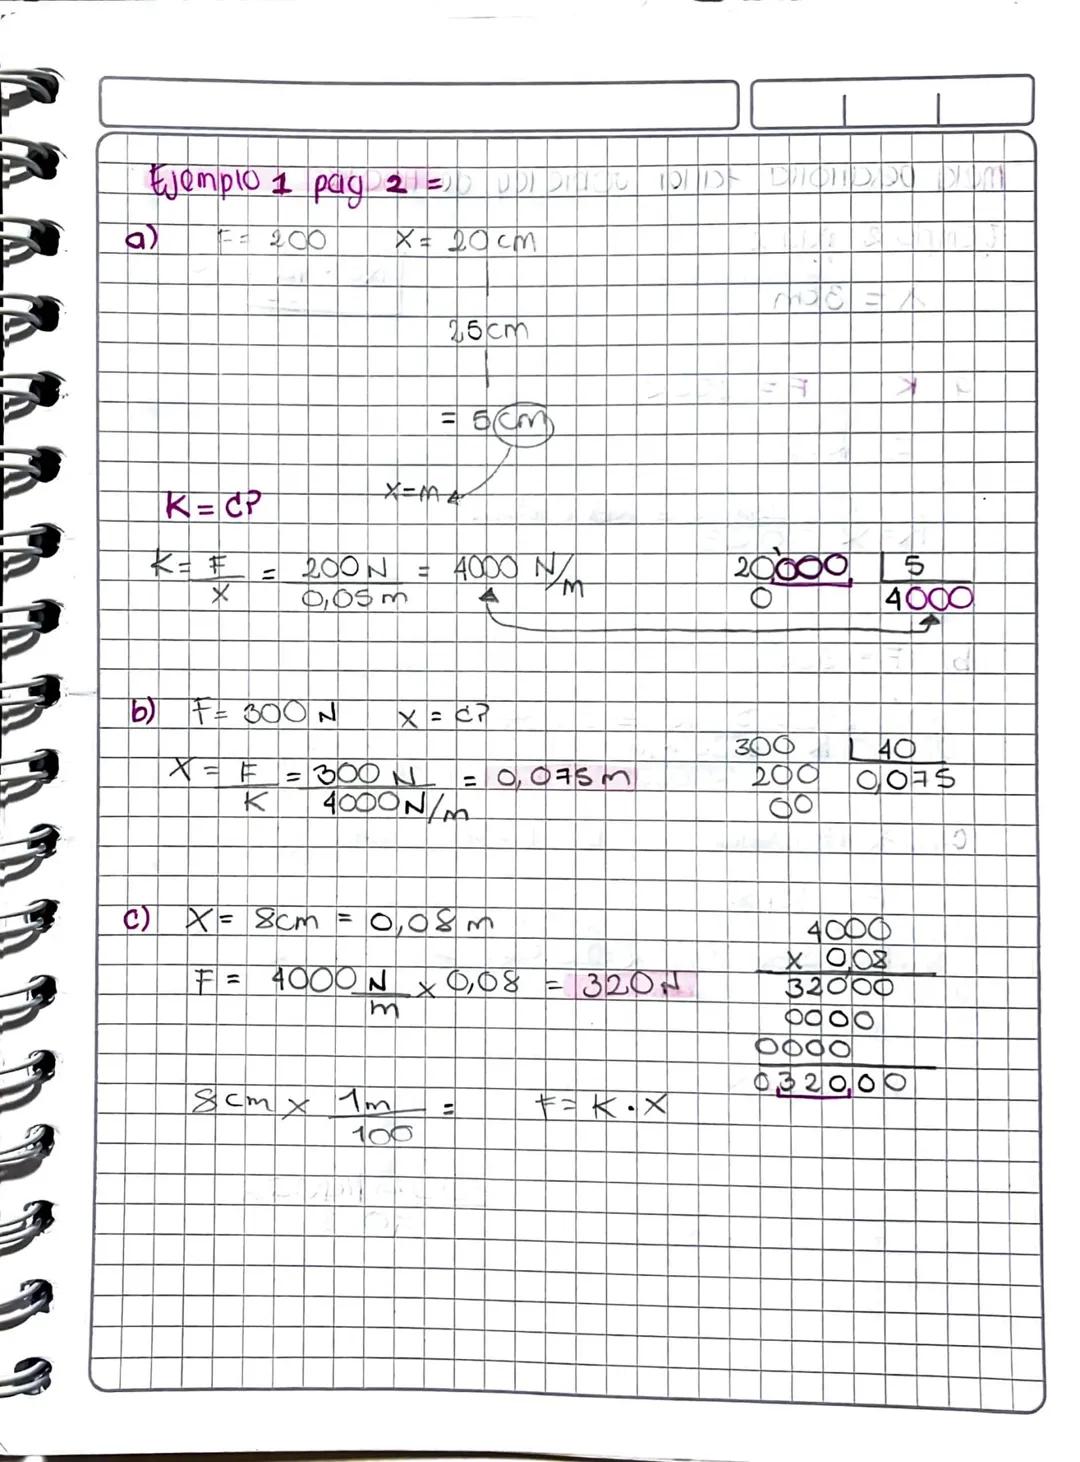 Ejemplo 1 pag 2 =
a) F = 200 X = 20 cm
25 cm
= 5 cm
X = m
K = ¿?
K = F/X = 200 N/0,05 m = 4000 N/m
20'000 | 5
0 4000
b) F = 300 N X = ¿?
X = F/K = 300 N/4000 N/m = 0,075 m
300 | 40
200 0,075
00
c) X = 8cm = 0,08 m
F = 4000 N/m x 0,08 = 320 N
4000
x 0,08
32000
0000
0000
0320,00
8 cm x 1m/100 = F = K . X